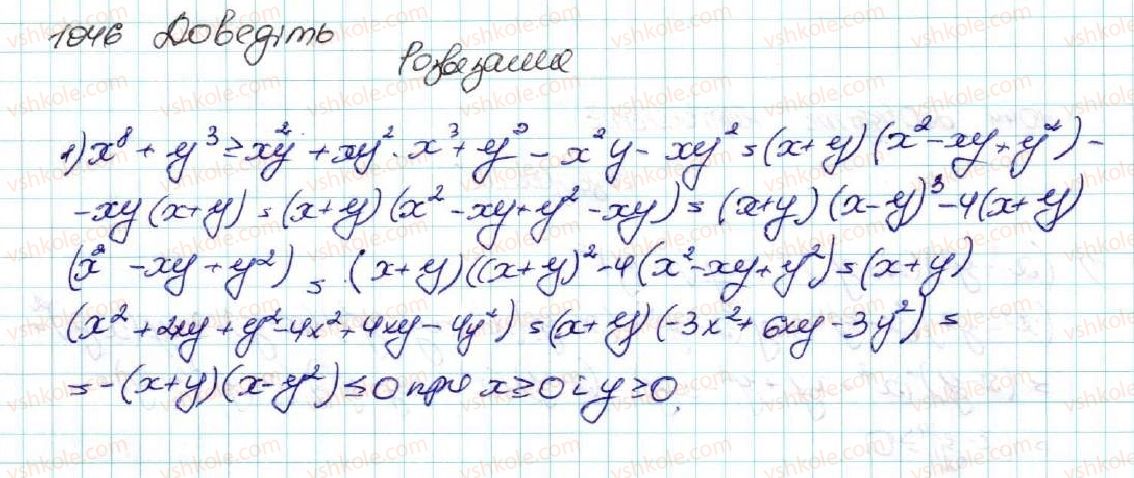 1046 Доведіть
Розвязання
1) x³ + y³ ≥ x²y + xy². x³ + y³ - x²y - xy² = (x+y) (x² - xy + y²) -
- xy (x+y) = (x+y) (x² - xy + y² - xy) = (x+y) (x-y)³ - 4(x+y)
(x² - xy + y²) = (x+y) ((x+y)² - 4(x² - xy + y²) = (x+y)
(x² + 2xy + y² - 4x² + 4xy - 4y²) = (x+y) (-3x² + 6xy - 3y²) =
= -(x+y) (x-y²) ≤ 0 при x ≥ 0 і y ≥ 0.